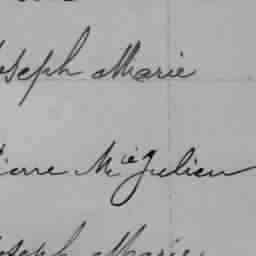 oseph Marie
ierre Mie Julien
oseph Marie